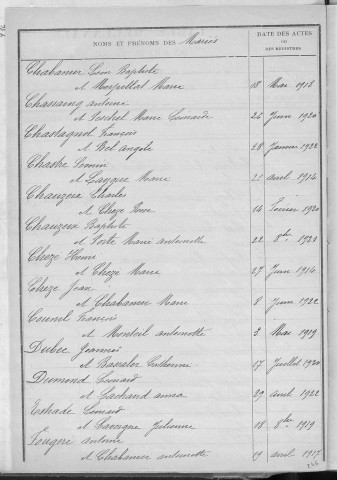 NOMS ET PRÉNOMS DES Mariés
DATE DES ACTES
OU
DES REGISTRES
Chabanier Léon Baptiste
et Marpillat Marie 18 Mai 1918
Chassaing antoine
et Peschel Marie Léonarde 26 Juin 1920
Chastagnol François
et Bel angèle 28 Janvier 1922
Chastre Firmin
et Laygue Marie 21 avril 1914
Chauzeix Charles
et Chèze 14 Février 1920
Chauzeix Baptiste
et Marie antoinette 22 8bre 1921
Chèze Henri
et Chèze Marie 27 Juin 1914
Chèze Jean
et Chabanier Marie 8 Juin 1922
Couneil François
et Monteil antoinette 3 Mai 1919
Dubec Jeannie
et Bassaler Catherine 17 Juillet 1920
Dumond Léonard
et Lachaud anna 29 avril 1922
Estrade Léonard
et Lavergne Julienne 18 8bre 1919
Feugère antoine
et Chabanier antoinette 19 avril 1917